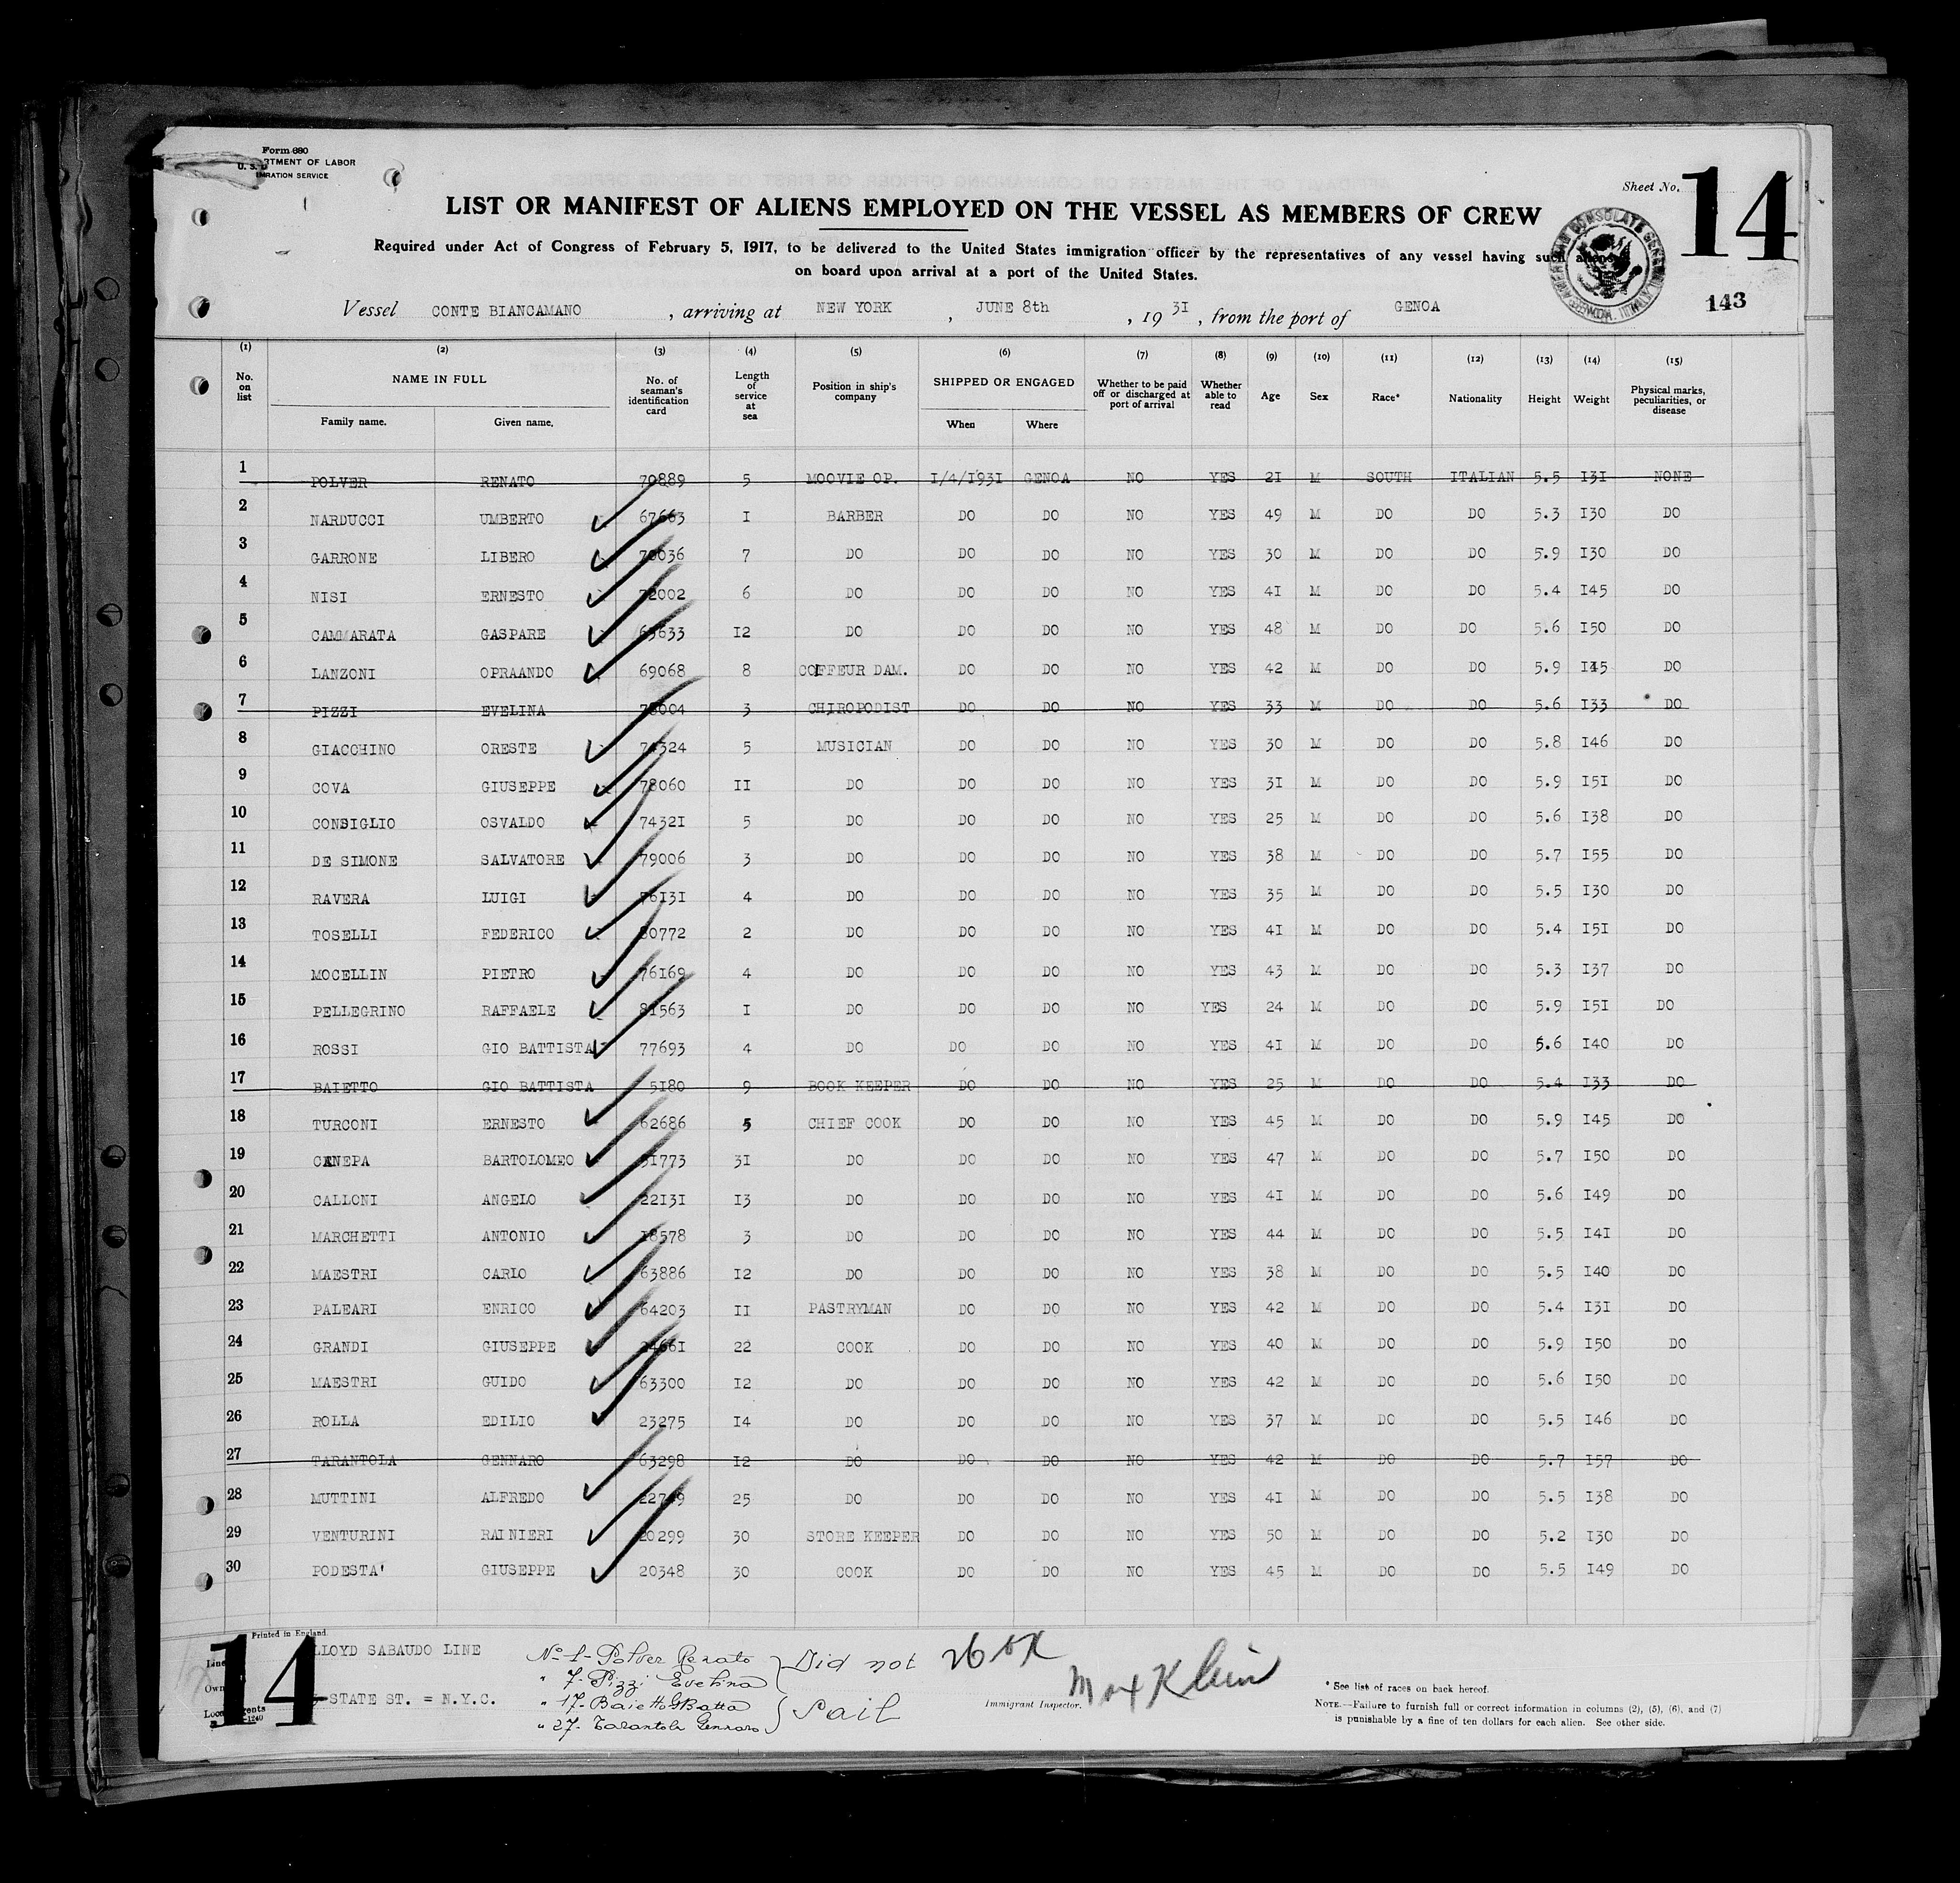 Form 680
U. S. D RTMENT OF LABOR
IMMIGRATION SERVICE
Sheet No. 14
LIST OR MANIFEST OF ALIENS EMPLOYED ON THE VESSEL AS MEMBERS OF CREW
Required under Act of Congress of February 5, 1917, to be delivered to the United States immigration officer by the representatives of any vessel having such aliens
on board upon arrival at a port of the United States.
143
Vessel CONTE BIANCAMANO , arriving at NEW YORK , JUNE 8th , 19 31 , from the port of GENOA
(1) (2) (3) (4) (5) (6) (7) (8) (9) (10) (11) (12) (13) (14) (15)
No. on list NAME IN FULL Family name. Given name. No. of seaman's identification card Length of service at sea Position in ship's company SHIPPED OR ENGAGED When Where Whether to be paid off or discharged at port of arrival Whether able to read Age Sex Race* Nationality Height Weight Physical marks, peculiarities, or disease
1 POLVER RENATO 70889 5 MOOVIE OP. I/4/I93I GENOA NO YES 2I M SOUTH ITALIAN 5.5 I3I NONE
2 NARDUCCI UMBERTO 67663 I BARBER DO DO NO YES 49 M DO DO 5.3 I30 DO
3 GARRONE LIBERO 036 7 DO DO DO NO YES 30 M DO DO 5.9 I30 DO
4 NISI ERNESTO 72002 6 DO DO DO NO YES 4I M DO DO 5.4 I45 DO
5 CAMMARATA GASPARE 63633 I2 DO DO DO NO YES 48 M DO DO 5.6 I50 DO
6 LANZONI OPRAANDO 69068 8 COFFEUR DAM. DO DO NO YES 42 M DO DO 5.9 I45 DO
7 PIZZI EVELINA 78004 3 CHIROPODIST DO DO NO YES 33 M DO DO 5.6 I33 DO
8 GIACCHINO ORESTE 74324 5 MUSICIAN DO DO NO YES 30 M DO DO 5.8 I46 DO
9 COVA GIUSEPPE 78060 II DO DO DO NO YES 3I M DO DO 5.9 I5I DO
10 CONSIGLIO OSVALDO 7432I 5 DO DO DO NO YES 25 M DO DO 5.6 I38 DO
11 DE SIMONE SALVATORE 79006 3 DO DO DO NO YES 38 M DO DO 5.7 I55 DO
12 RAVERA LUIGI 76I3I 4 DO DO DO NO YES 35 M DO DO 5.5 I30 DO
13 TOSELLI FEDERICO 80772 2 DO DO DO NO YES 4I M DO DO 5.4 I5I DO
14 MOCELLIN PIETRO 76I69 4 DO DO DO NO YES 43 M DO DO 5.3 I37 DO
15 PELLEGRINO RAFFAELE 8I563 I DO DO DO NO YES 24 M DO DO 5.9 I5I DO
16 ROSSI GIO BATTISTA 77693 4 DO DO DO NO YES 4I M DO DO 5.6 I40 DO
17 BAIETTO GIO BATTISTA 5I80 9 BOOK KEEPER DO DO NO YES 25 M DO DO 5.4 I33 DO
18 TURCONI ERNESTO 62686 5 CHIEF COOK DO DO NO YES 45 M DO DO 5.9 I45 DO
19 CANEPA BARTOLOMEO I773 3I DO DO DO NO YES 47 M DO DO 5.7 I50 DO
20 CALLONI ANGELO 22I3I I3 DO DO DO NO YES 4I M DO DO 5.6 I49 DO
21 MARCHETTI ANTONIO I8578 3 DO DO DO NO YES 44 M DO DO 5.5 I4I DO
22 MAESTRI CARLO 63886 I2 DO DO DO NO YES 38 M DO DO 5.5 I40 DO
23 PALEARI ENRICO 64203 II PASTRYMAN DO DO NO YES 42 M DO DO 5.4 I3I DO
24 GRANDI GIUSEPPE 2466I 22 COOK DO DO NO YES 40 M DO DO 5.9 I50 DO
25 MAESTRI GUIDO 63300 I2 DO DO DO NO YES 42 M DO DO 5.6 I50 DO
26 ROLLA EDILIO 23275 I4 DO DO DO NO YES 37 M DO DO 5.5 I46 DO
27 TARANTOLA GENNARO 63298 I2 DO DO DO NO YES 42 M DO DO 5.7 I57 DO
28 MUTTINI ALFREDO 22749 25 DO DO DO NO YES 4I M DO DO 5.5 I38 DO
29 VENTURINI RAINIERI 20299 30 STORE KEEPER DO DO NO YES 50 M DO DO 5.2 I30 DO
30 PODESTA' GIUSEPPE 20348 30 COOK DO DO NO YES 45 M DO DO 5.5 I49 DO
Printed in England.
14
LLOYD SABAUDO LINE
STATE ST. = N.Y.C.
No 1- Polver Renato
" 7- Pizzi Evelina
" 17- Baietto GBatta
" 27- Tarantola Gennaro
Did not
Sail
26
Max Klein
Immigrant Inspector.
* See list of races on back hereof.
NOTE.—Failure to furnish full or correct information in columns (2), (5), (6), and (7)
is punishable by a fine of ten dollars for each alien. See other side.